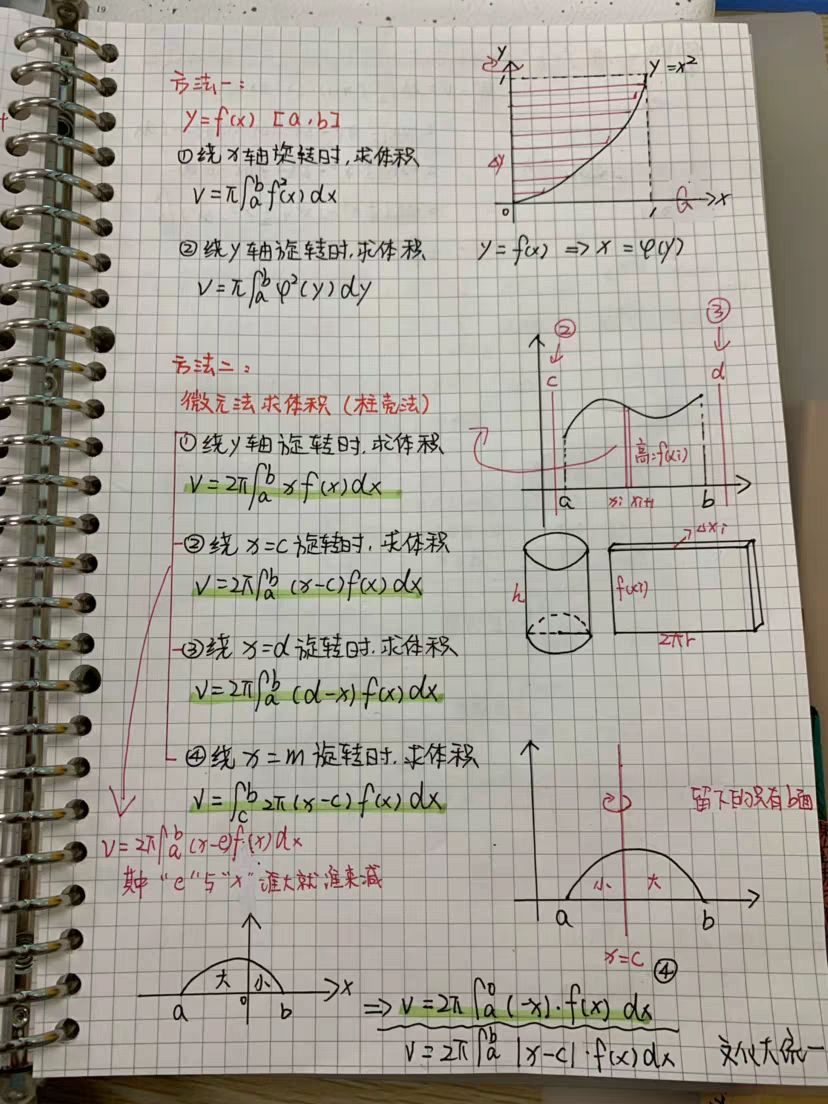 19
方法一:
y=f(x) [a,b]
①绕x轴旋转时,求体积
V=π∫ₐᵇf²(x)dx
②绕y轴旋转时,求体积
V=π∫ₐᵇφ²(y)dy
y
1
y=x²
Δy
0
1
x
y=f(x) ⇒ x=φ(y)
方法二:
微元法求体积(柱壳法)
①绕y轴旋转时,求体积
V=2π∫ₐᵇxf(x)dx
②绕x=c旋转时,求体积
V=2π∫ₐᵇ(x-c)f(x)dx
③绕x=d旋转时,求体积
V=2π∫ₐᵇ(d-x)f(x)dx
④绕x=m旋转时,求体积
V=∫_c^b 2π(x-c)f(x)dx
V=2π∫ₐᵇ(x-e)f(x)dx
其中"e"与"x"谁大就谁来减
② ③
c d
高=f(xi)
a xi xi+1 b
Δxi
h f(xi)
2πr
留下的只有b面
小 大
a b
x=c ④
大 小
a 0 b x
⇒ V=2π∫ₐ⁰(-x)·f(x)dx
V=2π∫ₐᵇ|x-c|·f(x)dx